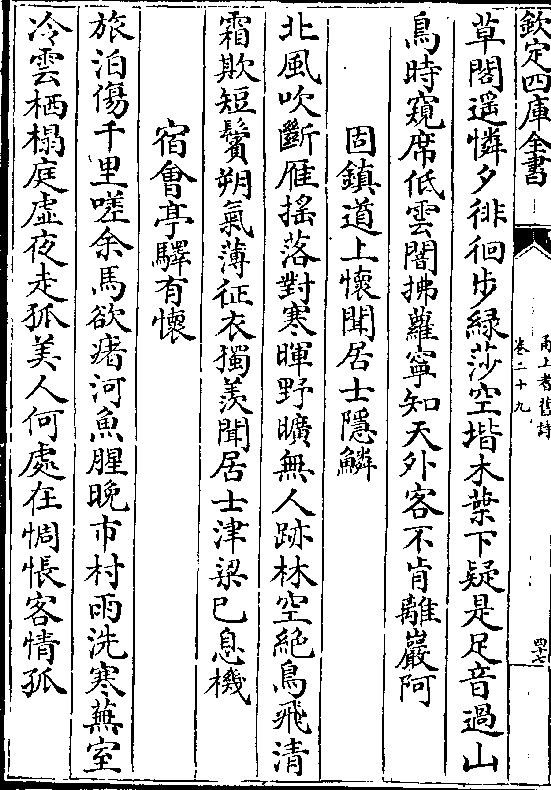 欽定四庫全書
甬上耆舊詩
卷二十九
四十七
草閣遥憐夕徘徊步緑莎空堦木葉下疑是足音過山
鳥時窺席低雲闇拂蘿寧知天外客不肯離巖阿
固鎮道上懷聞居士隱鱗
北風吹斷雁摇落對寒暉野曠無人跡林空絶鳥飛清
霜欺短鬢朔氣薄征衣獨羨聞居士津梁已息機
宿會亭驛有懷
旅泊傷千里嗟余馬欲瘏河魚腥晚市村雨洗寒蕪室
冷雲栖榻庭虚夜走狐美人何處在惆悵客情孤